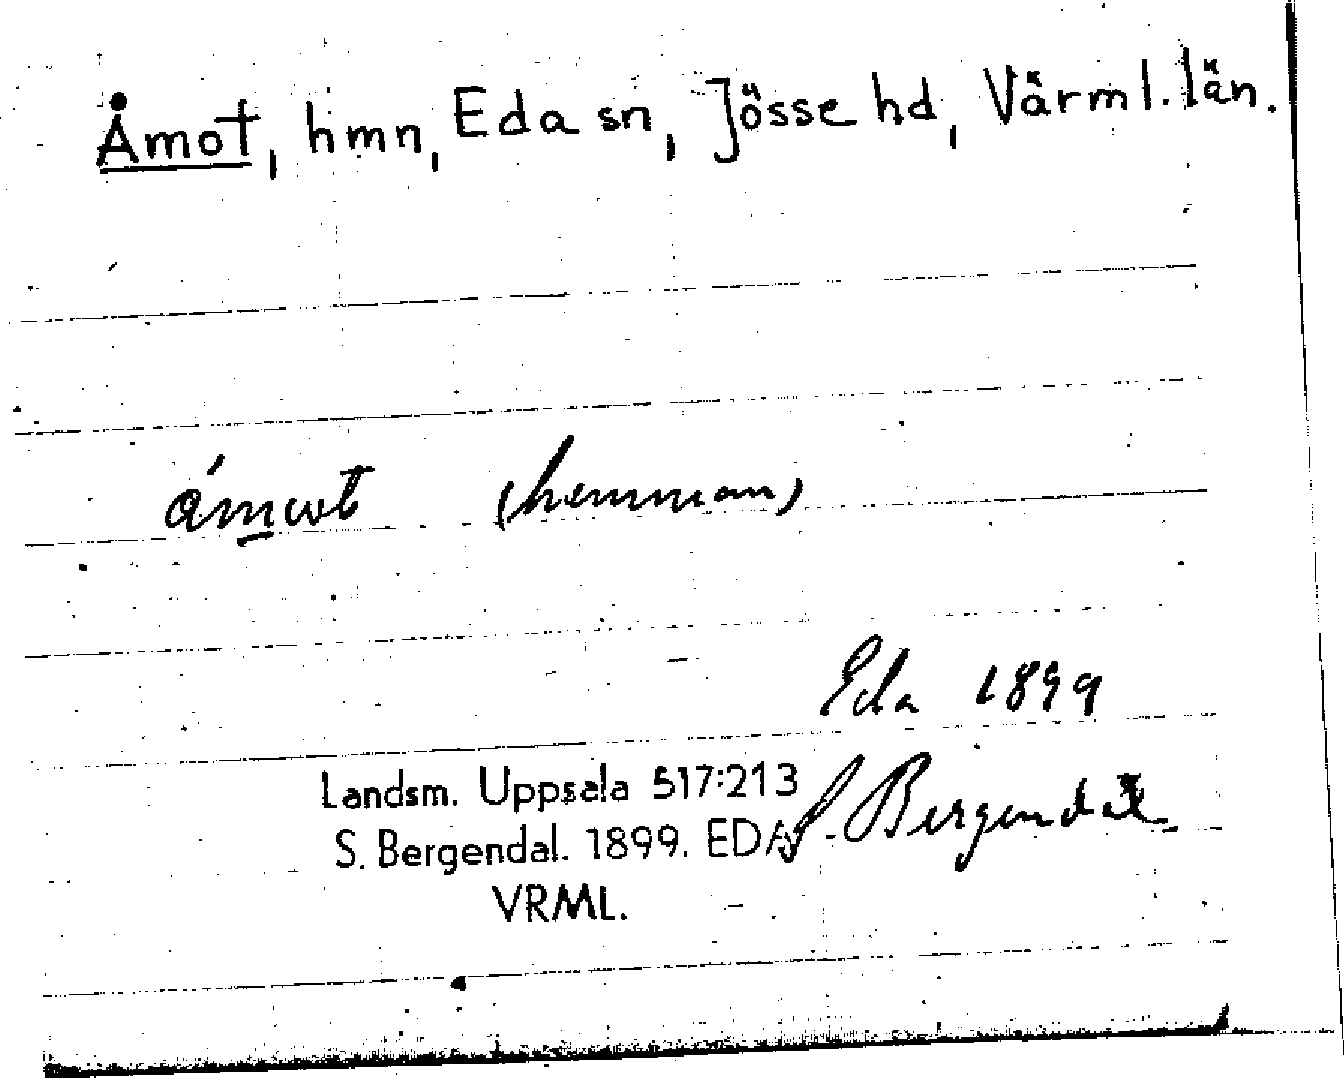 Åmot, hmn, Eda sn, Jösse hd, Värml. län.
(hemman)
Eda 1899
Landsm. Uppsala 517:213
S. Bergendal. 1899. EDA
VRML.
S. Bergendal